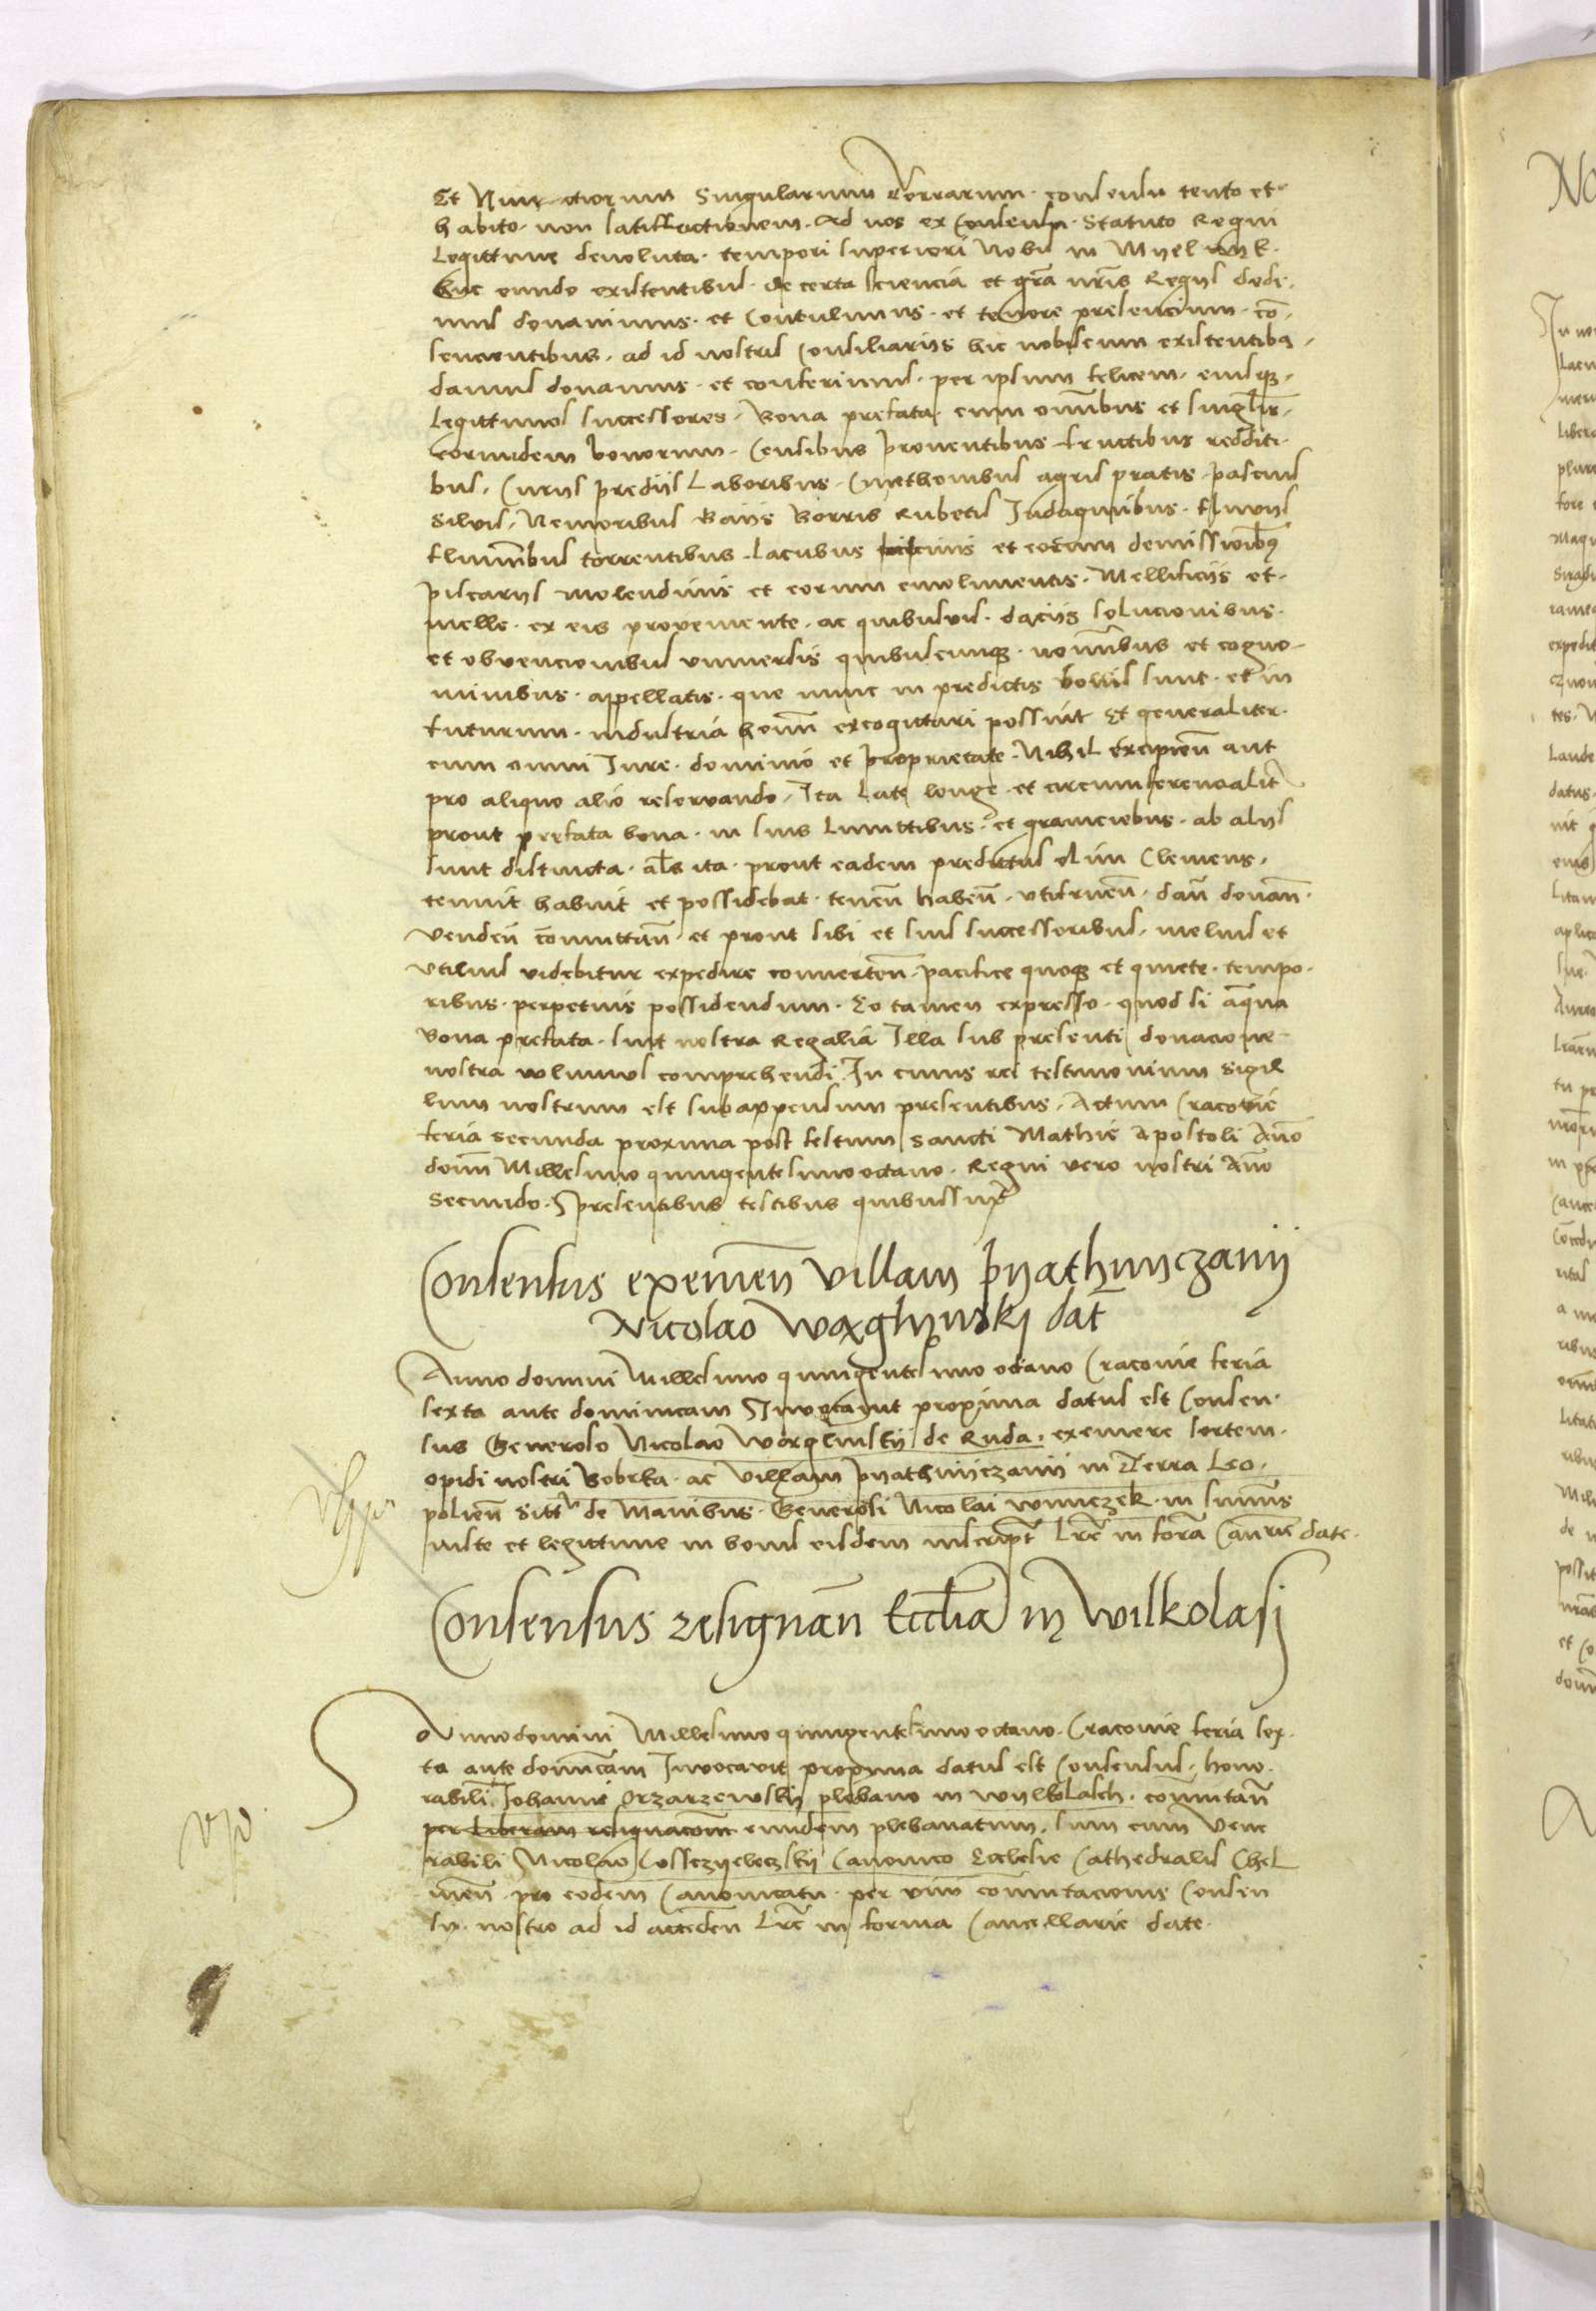 Et Nunctiorum Singularum Terrarum consensu tento et
habito non satisfactionem ad nos ex Consensu Statuto Regni
Legittime devoluta tempori superiori Nobis in Myelnyk
huc eundo existentibus de certa sciencia et gra nris Regys dedi
mus donavimus et Contulimus et tenore presencium con
sencientibus ad id nostris Consiliariis hic nobiscum existentibus
damus donamus et conferimus per ipsum felicem eiusque
Legittimos successores Bona prefata cum omnibus et singulis
eorundem bonorum Censibus proventibus fructibus redditi
bus Curys prediis Laboribus Cmethonibus agris pratis pascuis
Silvis Nemoribus Gaiis Borris Rubetis Indaginibus fluvys
fluminbus torrentibus lacubus et eorum demissionibus
piscarys molendinis et eorum emolimentis Mellificiis et
melle ex eis proveniente ac quibusvis daciis solucionibus
et obvencionibus universis quibuscunque nominibus et cogno
minibus appellatis que nunc in predictis bonis sunt et in
futurum industria homi excogittari possint Et generaliter
cum omni Iure dominio et proprietate Nihil excipien aut
pro aliquo alio reservando Ita Late longe et circumferencialit
prout prefata bona in suis Limittibus et graniciebus ab alys
sunt distincta als ita prout eadem predictus olim Clemens
tenuit habuit et possidebat tenen haben utifruen dan donan
venden commuttan et prout sibi et suis successoribus melius et
utilius videbitur expedire converten pacifice quoque et quiete tempo
ribus perpetuis possidendum Eo tamen expresso quod si aqua
bona prefata sint nostra Regalia Illa sub presenti donacione
nostra volumus comprehendi In cuius rei testimonium Sigil
lum nostrum est subappensum presentibus Actum Cracovie
feria secunda proxima post festum sancti Mathie Apostoli Anno
domi Millesimo quingentesimooctavo Regni vero nostri Anno
Secundo presentibus testibus quibussupra
Consensus exemen villam pyathnyczany
Nicolao Woxghynsky dat
Anno domini Millesimo quingentesimo octavo Cracovie feria
sexta ante dominicam Invocavit proxima datus est Consen
sus Generoso Nicolao Worglinsky de Ruda exemere sortem
opidi nostri Bobrka ac villam pyathniczany in Terra Leo
polien Sitt de Manibus Generosi Nicolai Wnuczek in summis
iuste et legittime in bonis eisdem inscript Lre in forma Cancrie date
Consensus resignan Ecclia in Wilkolasy
Anno domini Millesimo quingentesimo octavo Cracovie feria sex
ta ante dominicam Invocavit proxima datus est Consensus hono
rabili Johanni Orzarzewsky plebano in Wylkolasch commutan
per liberam resignacom eundem plebanatum suum cum Vene
rabili Nicolao Cossczyeleczsky Canonico Ecclesie Cathedralis Chel
men pro eodem Canonicatu per viam commutacionis Consen
su nostro ad id acceden Lre in forma Cancellarie date